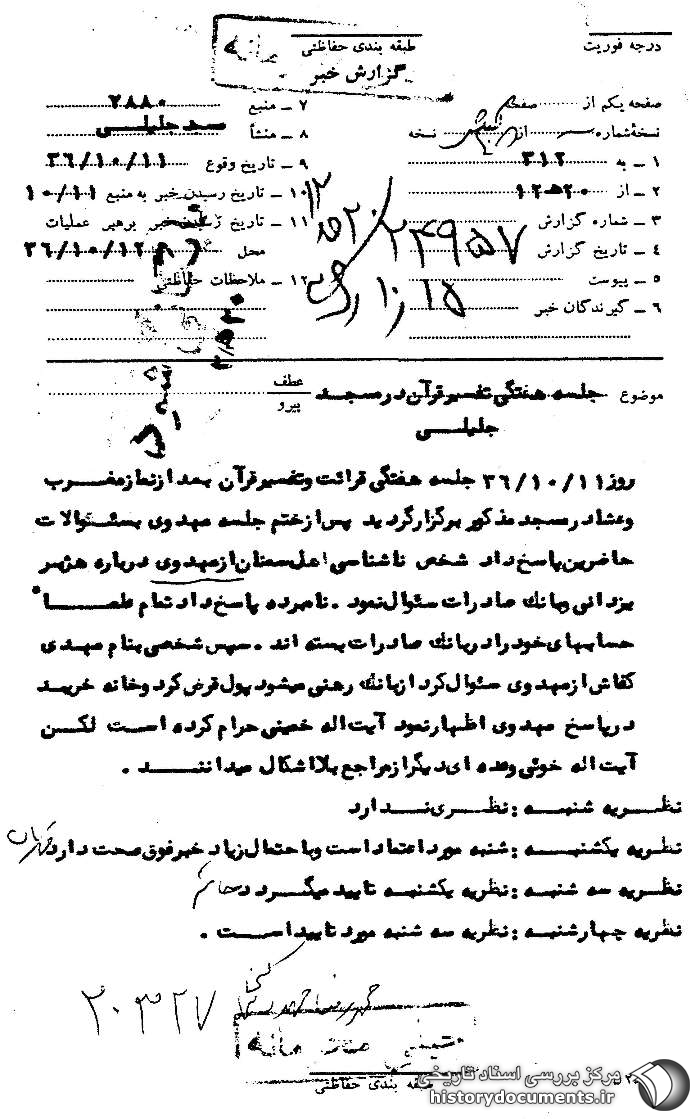 درجه فوریت
طبقه بندی حفاظتی
گزارش خبر
صفحه یکم از صفحه
نسخهٔ شماره از نسخه
۱ ـ به ۳۱۲
۲ ـ از ۲۰ ه ۱۲
۳ ـ شماره گزارش
۴ ـ تاریخ گزارش
۵ ـ پیوست
۶ ـ گیرندگان خبر
۲۴۹۵۷
۷ ـ منبع ۲۸۸۰
۸ ـ منشأ مسجد جلیلی
۹ ـ تاریخ وقوع ۳۶/۱۰/۱۱
۱۰ ـ تاریخ رسیدن خبر به منبع ۱۰/۱۱
۱۱ ـ تاریخ رسیدن خبر برهبر عملیات
محل ۳۶/۱۰/۱۲
۱۲ ـ ملاحظات حفاظتی
موضوع جلسه هفتگی تفسیر قرآن در مسجد
جلیلی
عطف
پیرو
روز ۳۶/۱۰/۱۱ جلسه هفتگی قرائت و تفسیر قرآن بعد از نماز مغرب
و عشا در مسجد مذکور برگزار گردید پس از ختم جلسه مهدوی بسئوالات
حاضرین پاسخ داد شخص ناشناسی اهل سمنان از مهدوی درباره هژبر
یزدانی و بانک صادرات سئوال نمود . نامبرده پاسخ داد تمام علما
حسابهای خود را در بانک صادرات بسته اند . سپس شخصی بنام مهدی
کفاش از مهدوی سئوال کرد از بانک رهنی میشود پول قرض کرد و خانه خرید
در پاسخ مهدوی اظهار نمود آیت اله خمینی حرام کرده است لکن
آیت اله خوئی و عده ای دیگر از مراجع بلا اشکال میدانند .
نظریه شنبه : نظری ندارد
نظریه یکشنبه : شنبه مورد اعتماد است و با احتمال زیاد خبر فوق صحت دارد
نظریه سه شنبه : نظریه یکشنبه تایید میگردد
نظریه چهارشنبه : نظریه سه شنبه مورد تایید است .
۲۰۳۲۷
طبقه بندی حفاظتی
مرکز بررسی اسناد تاریخی
historydocuments.ir